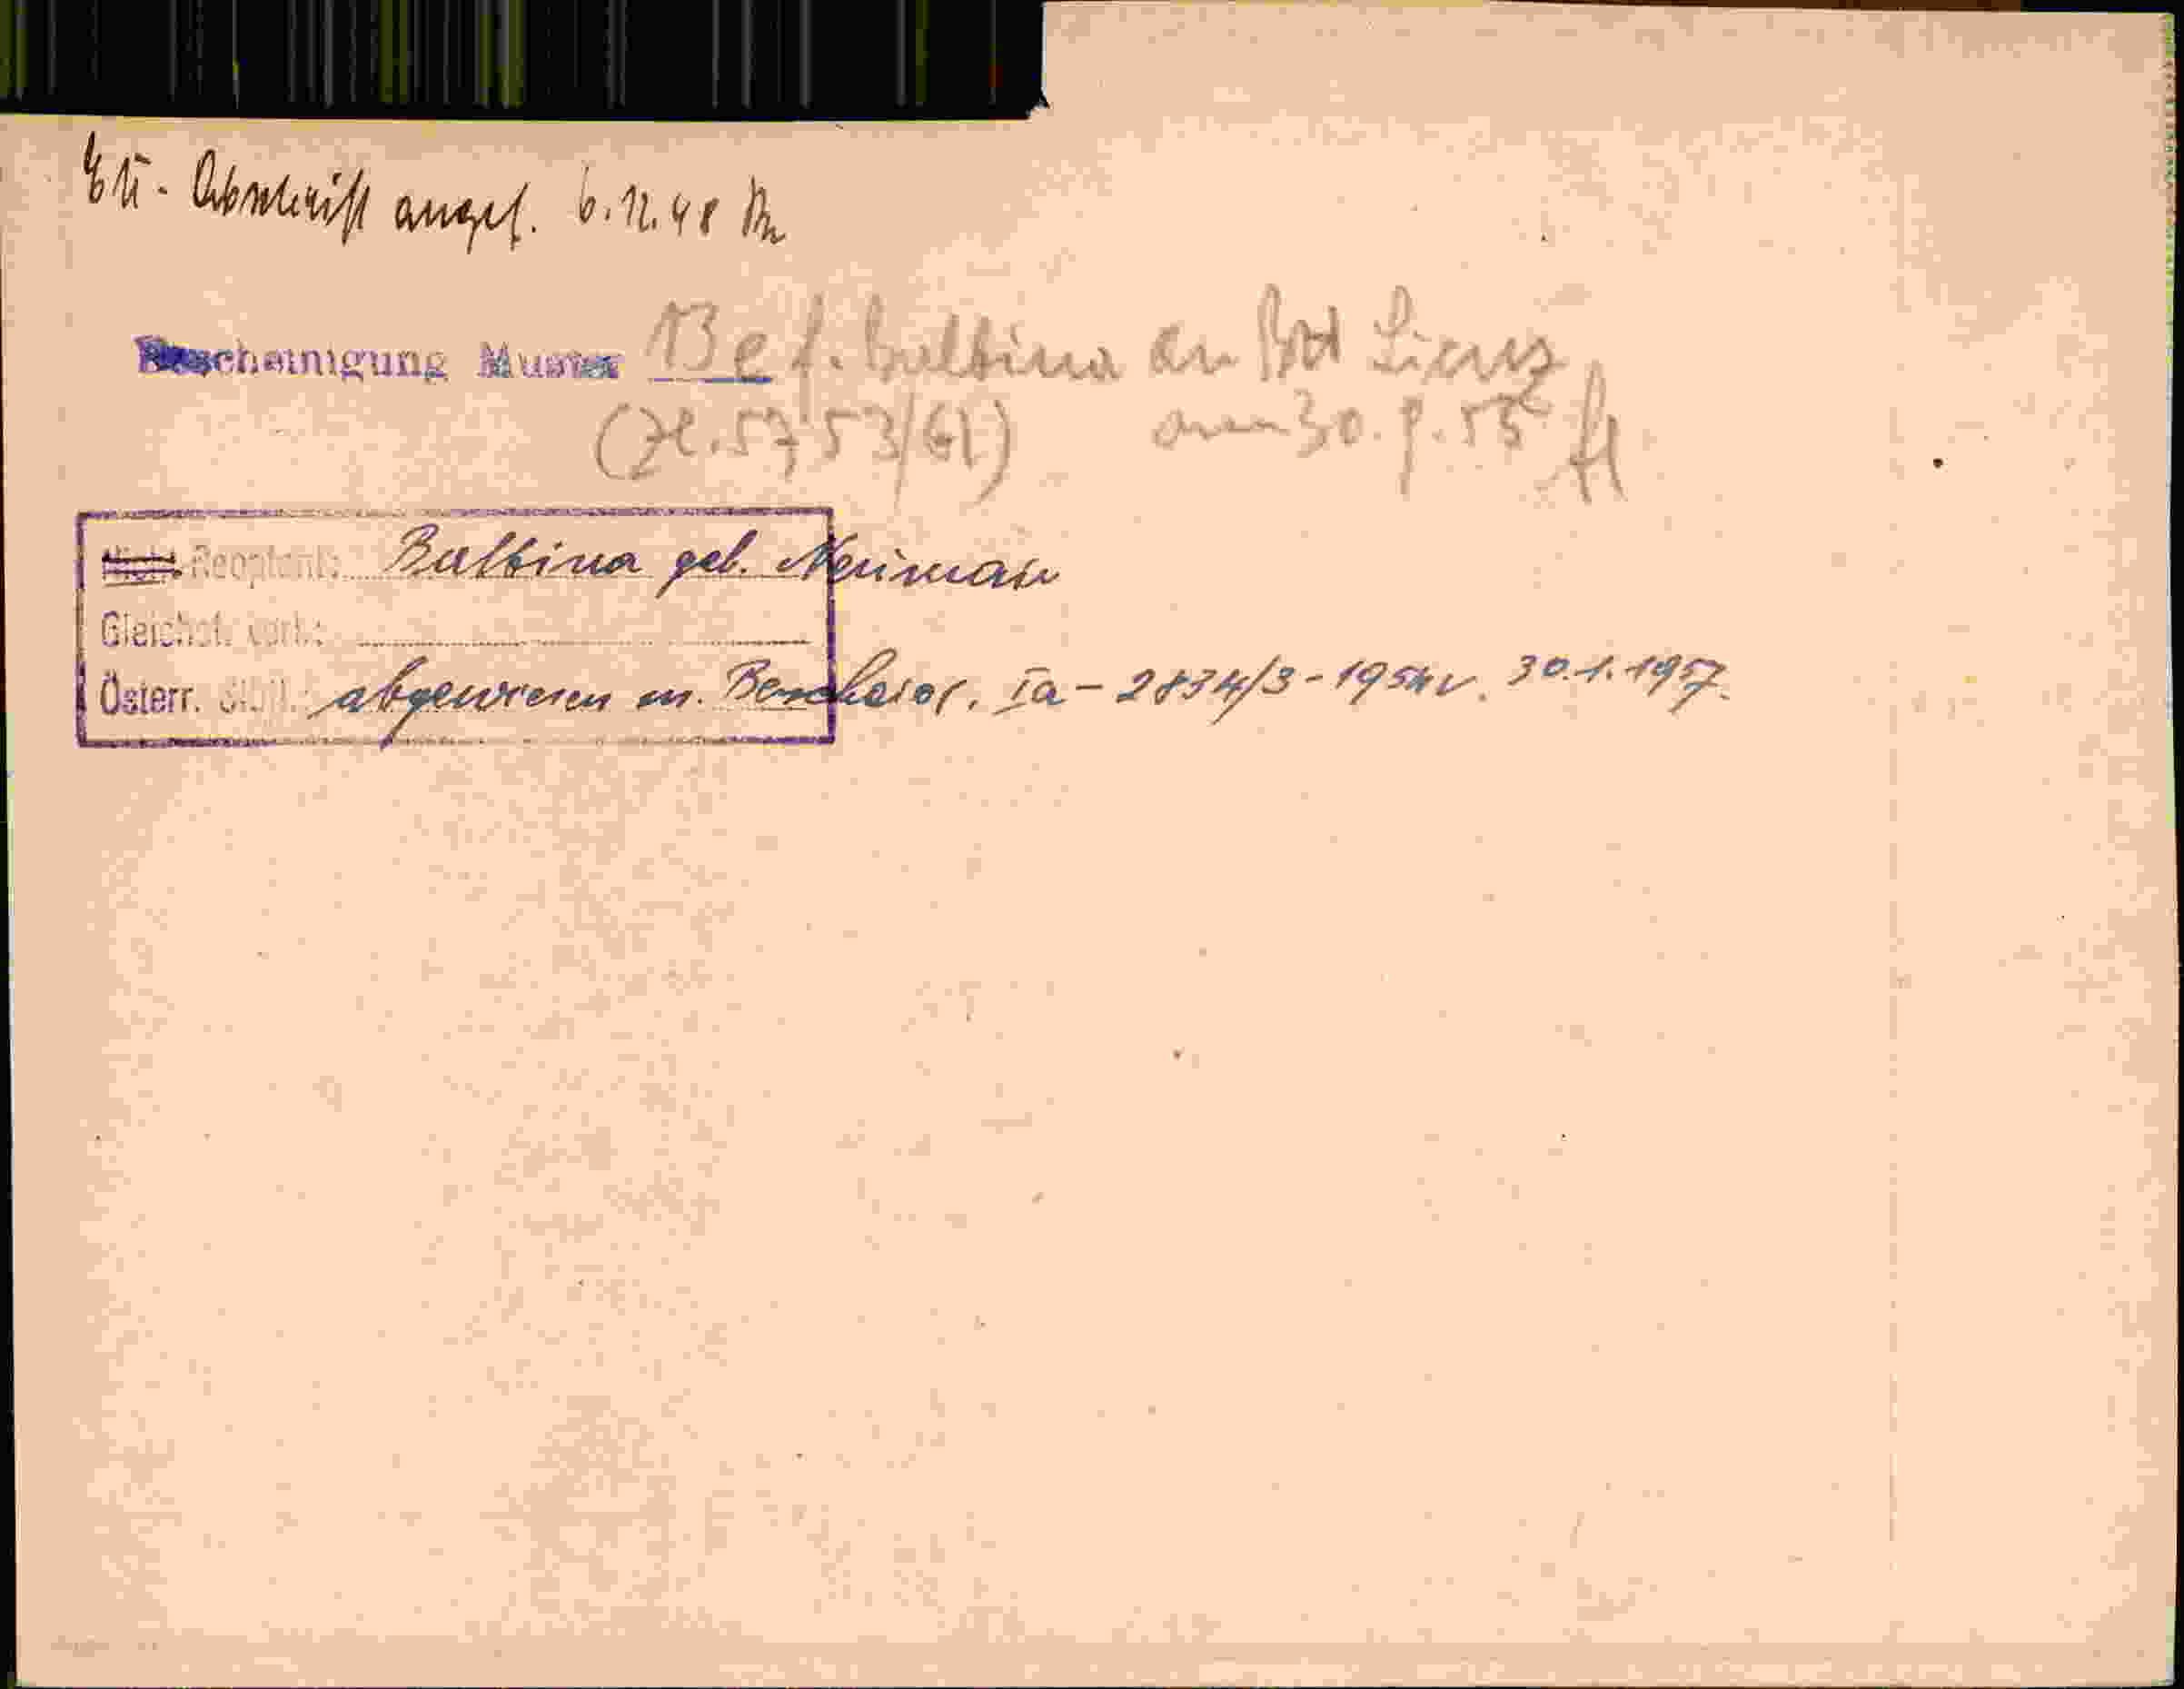 EU - Abschrift angef. 6.12.48
Bescheinigung Muster 13e f. Balbina an BH Lienz
(Zl. 5753/61) am 30.9.55
Nicht Reoptant: Balbina geb. Neumair
Gleichst. vort.:
Österr. Stbü.: abgewiesen m. Bescheid, Ia - 2834/3-1954 v. 30.1.1957.